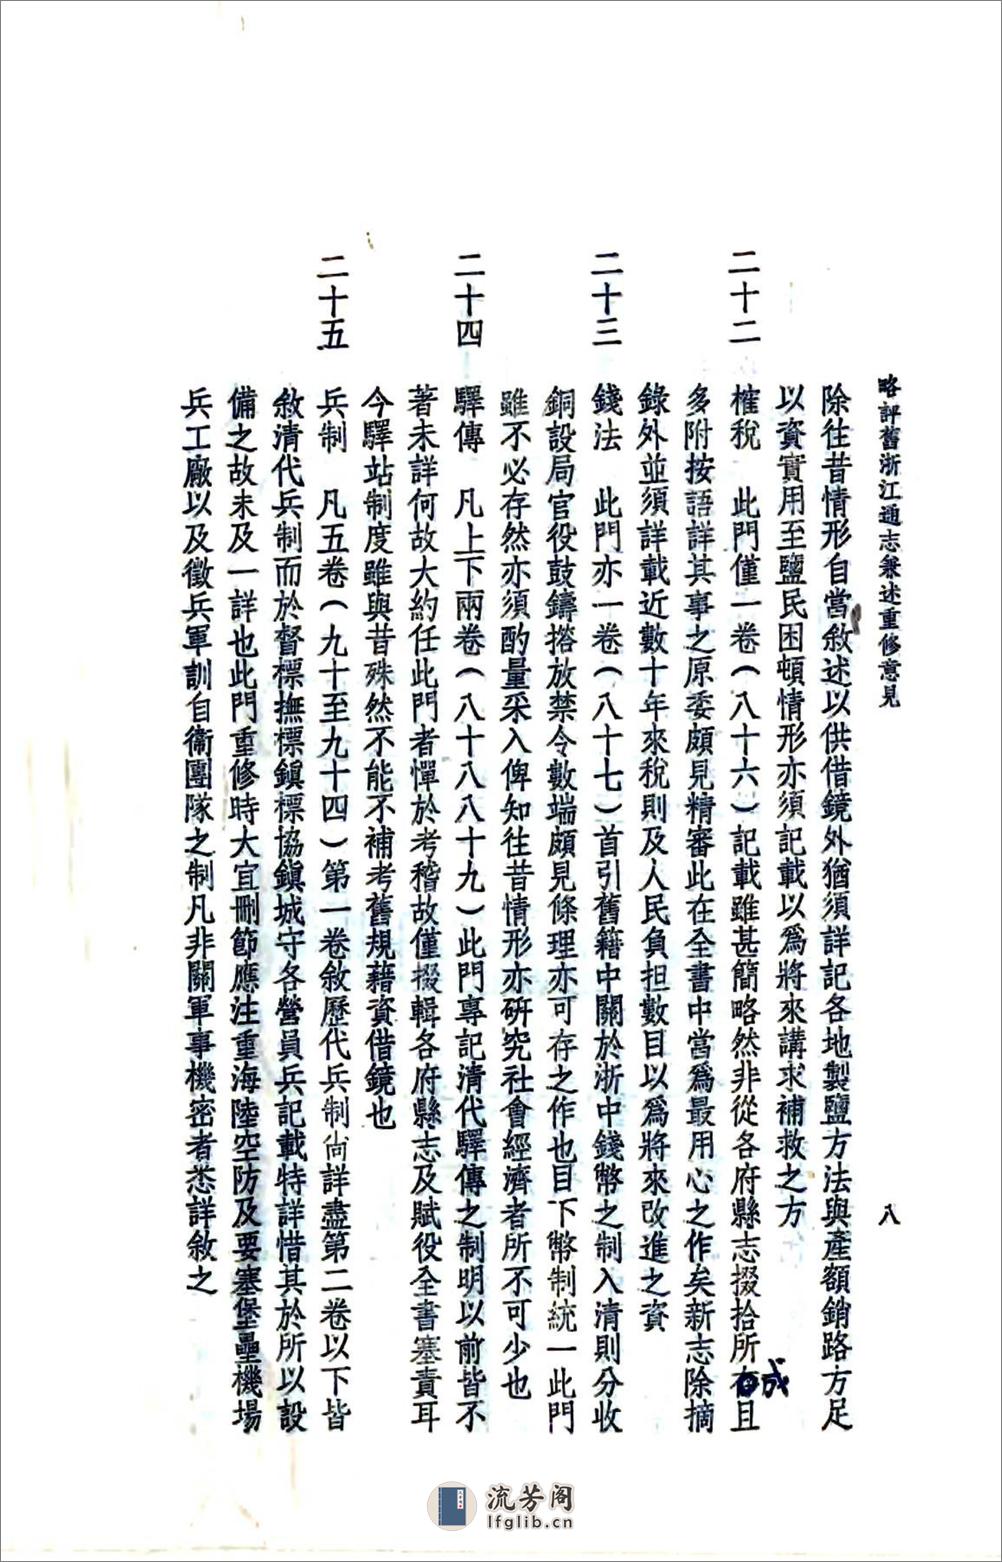 略評舊浙江通志兼述重修意見
八
除往昔情形自當敘述以供借鏡外猶須詳記各地製鹽方法與產額銷路方足
以資實用至鹽民困頓情形亦須記載以爲將來講求補救之方
二十二
榷稅　此門僅一卷(八十六)記載雖甚簡略然非從各府縣志掇拾所成且
多附按語詳其事之原委頗見精審此在全書中當爲最用心之作矣新志除摘
錄外並須詳載近數十年來稅則及人民負担數目以爲將來改進之資
二十三
錢法　此門亦一卷(八十七)首引舊籍中關於浙中錢幣之制入清則分收
銅設局官役鼓鑄搭放禁令數端頗見條理亦可存之作也目下幣制統一此門
雖不必存然亦須酌量采入俾知往昔情形亦研究社會經濟者所不可少也
二十四
驛傳　凡上下兩卷(八十八八十九)此門專記清代驛傳之制明以前皆不
著未詳何故大約任此門者憚於考稽故僅掇輯各府縣志及賦役全書塞責耳
今驛站制度雖與昔殊然不能不補考舊規藉資借鏡也
二十五
兵制　凡五卷(九十至九十四)第一卷敘歷代兵制尙詳盡第二卷以下皆
敘清代兵制而於督標撫標鎮標協鎭城守各營員兵記載特詳惜其於所以設
備之故未及一詳也此門重修時大宜刪節應注重海陸空防及要塞堡壘機場
兵工廠以及徵兵軍訓自衞團隊之制凡非關軍事機密者悉詳敘之
流芳阁
lfglib.cn